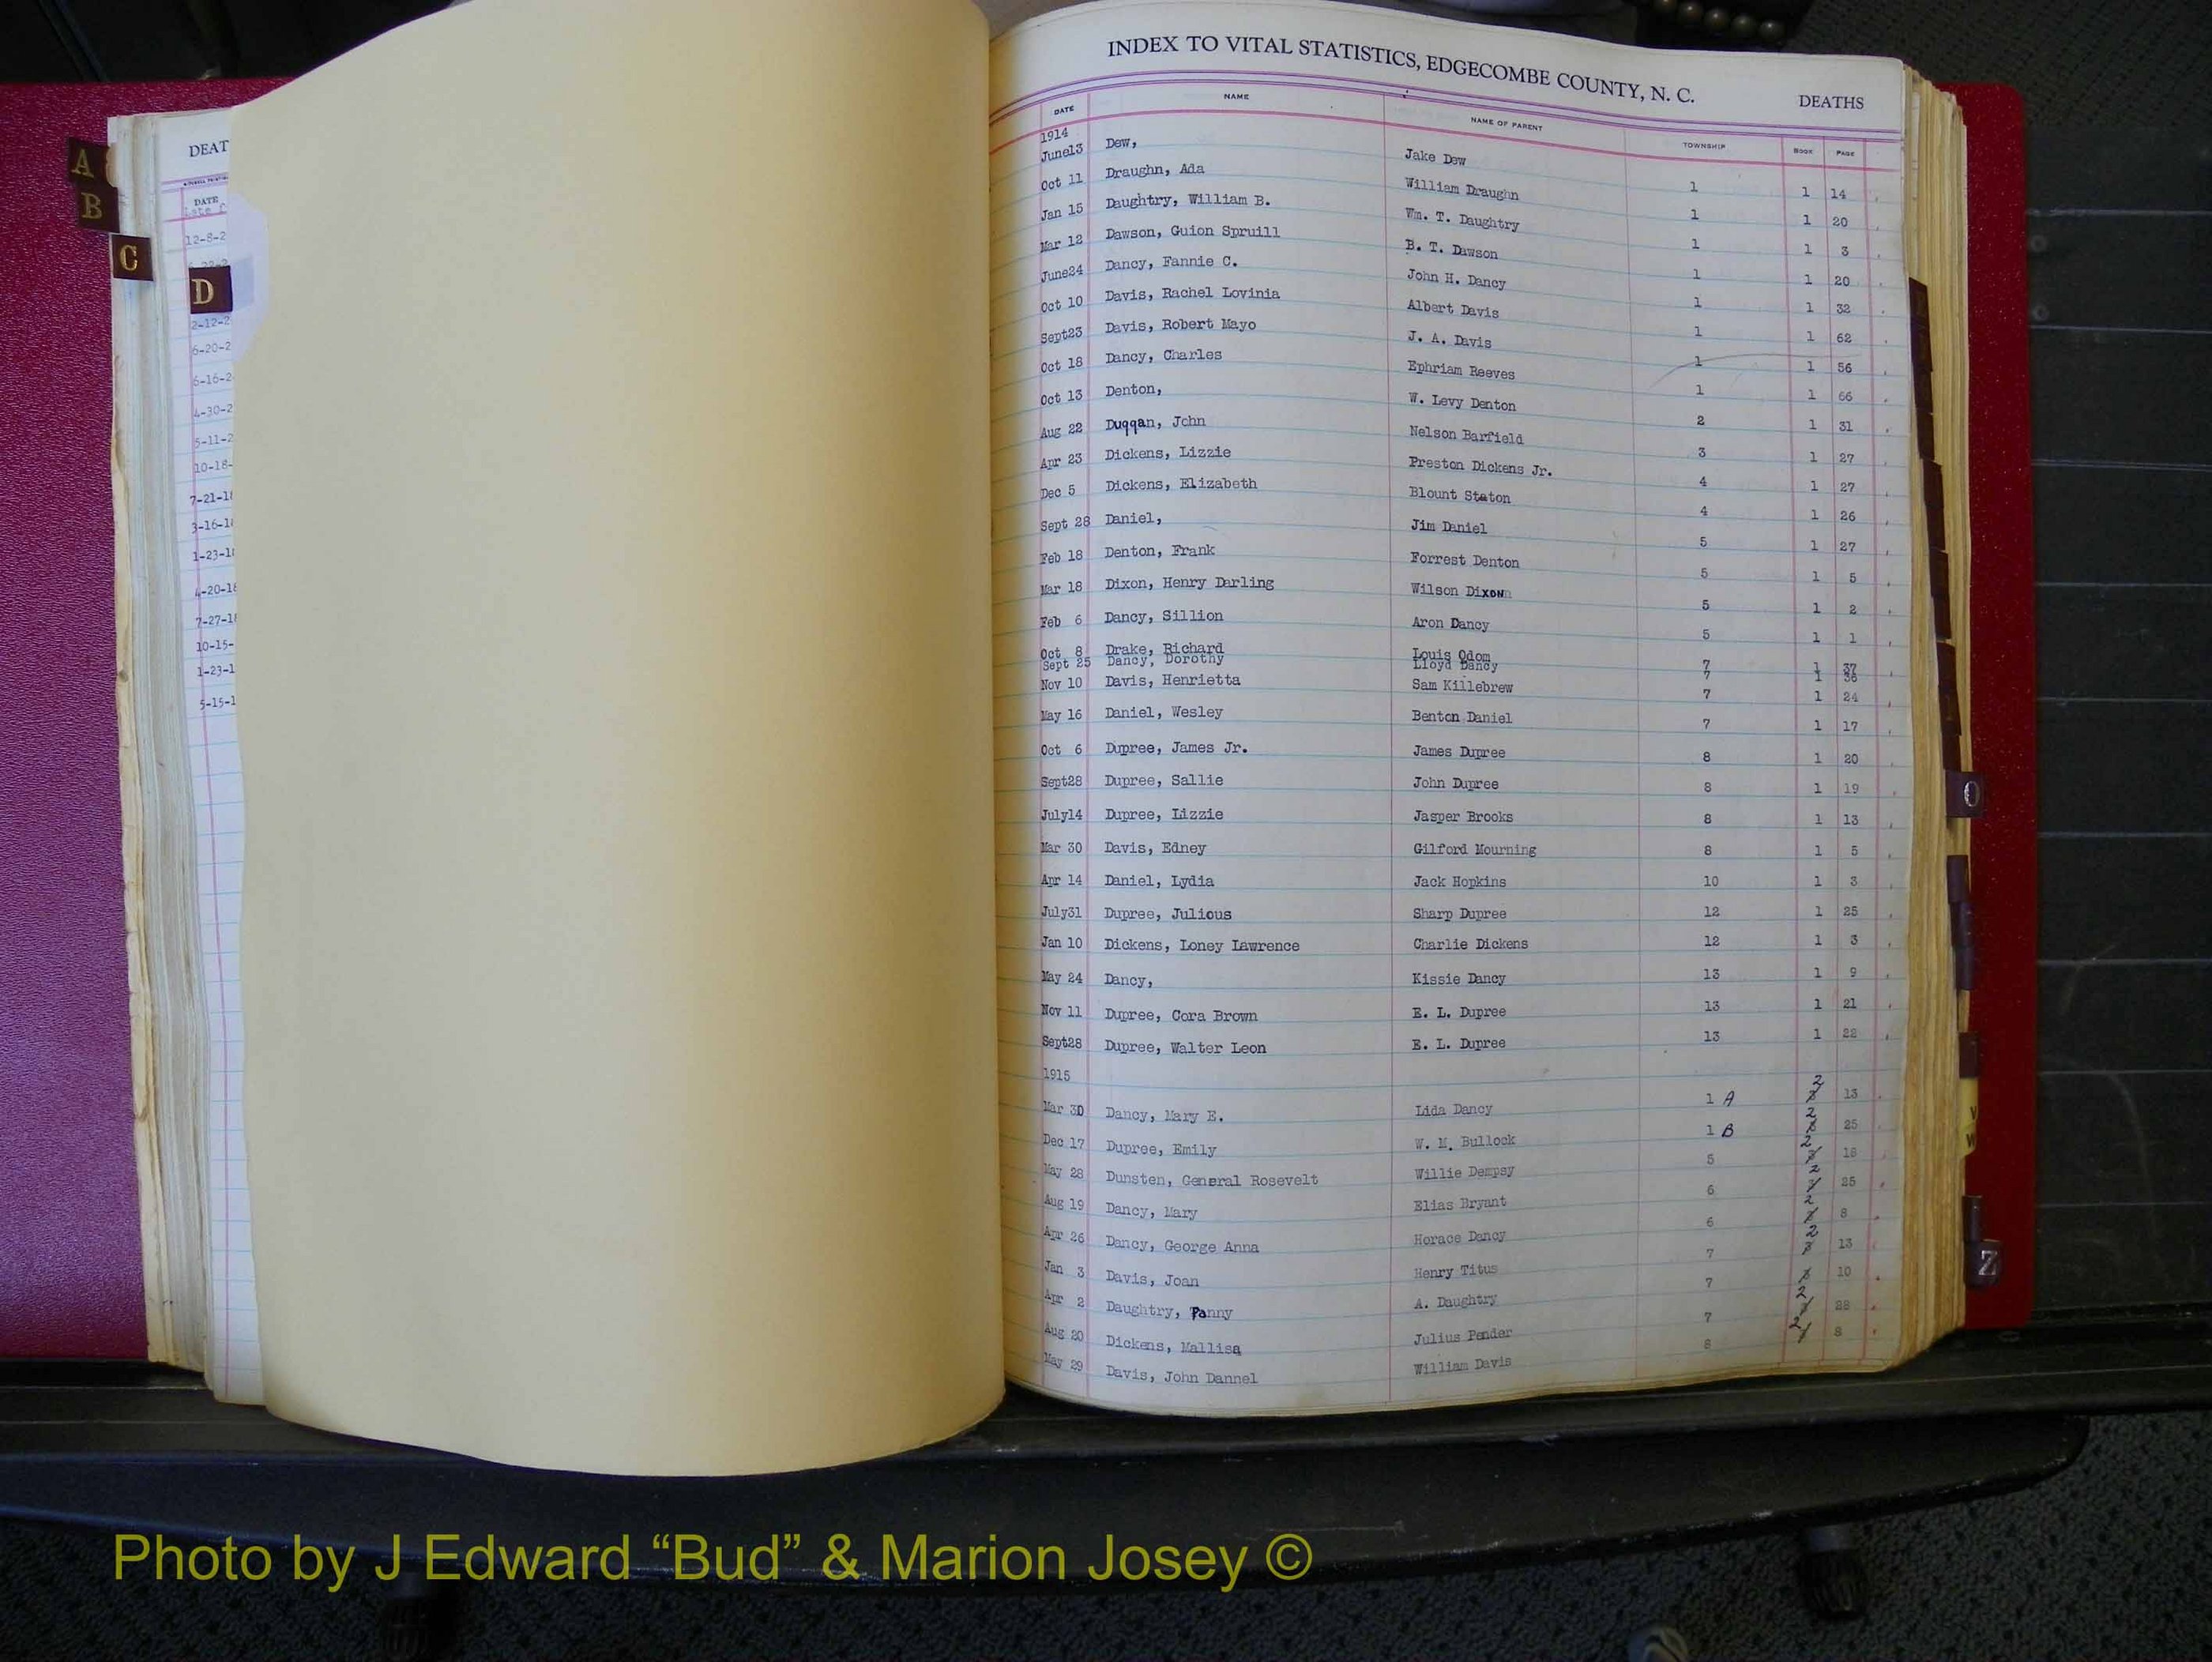 A
B
C
D
DEAT
DATE
12-8-2
2-12-2
6-20-2
6-16-2
4-30-2
5-11-2
10-18-
7-21-18
3-16-18
1-23-18
4-20-18
7-27-18
10-15-
1-23-1
5-15-1
INDEX TO VITAL STATISTICS, EDGECOMBE COUNTY, N. C. DEATHS
DATE NAME NAME OF PARENT TOWNSHIP BOOK PAGE
1914
June13 Dew, Jake Dew 1 1 14
Oct 11 Draughn, Ada William Draughn 1 1 20
Jan 15 Daughtry, William B. Wm. T. Daughtry 1 1 3
Mar 12 Dawson, Guion Spruill B. T. Dawson 1 1 20
June24 Dancy, Fannie C. John H. Dancy 1 1 32
Oct 10 Davis, Rachel Lovinia Albert Davis 1 1 62
Sept23 Davis, Robert Mayo J. A. Davis 1 1 56
Oct 18 Dancy, Charles Ephriam Reeves 1 1 66
Oct 13 Denton, W. Levy Denton 2 1 31
Aug 22 Duqqan, John Nelson Barfield 3 1 27
Apr 23 Dickens, Lizzie Preston Dickens Jr. 4 1 27
Dec 5 Dickens, Elizabeth Blount Staton 4 1 26
Sept 28 Daniel, Jim Daniel 5 1 27
Feb 18 Denton, Frank Forrest Denton 5 1 5
Mar 18 Dixon, Henry Darling Wilson Dixon 5 1 2
Feb 6 Dancy, Sillion Aron Dancy 5 1 1
Oct 8 Drake, Richard Louis Odom 7 1 37
Sept 25 Dancy, Dorothy Lloyd Dancy 7 1 36
Nov 10 Davis, Henrietta Sam Killebrew 7 1 24
May 16 Daniel, Wesley Benton Daniel 7 1 17
Oct 6 Dupree, James Jr. James Dupree 8 1 20
Sept28 Dupree, Sallie John Dupree 8 1 19
July14 Dupree, Lizzie Jasper Brooks 8 1 13
Mar 30 Davis, Edney Gilford Mourning 8 1 5
Apr 14 Daniel, Lydia Jack Hopkins 10 1 3
July31 Dupree, Julious Sharp Dupree 12 1 25
Jan 10 Dickens, Loney Lawrence Charlie Dickens 12 1 3
May 24 Dancy, Kissie Dancy 13 1 9
Nov 11 Dupree, Cora Brown E. L. Dupree 13 1 21
Sept28 Dupree, Walter Leon E. L. Dupree 13 1 22
1915
Mar 30 Dancy, Mary E. Lida Dancy 1 A 2 13
Dec 17 Dupree, Emily W. M. Bullock 1 B 2 25
May 28 Dunsten, General Rosevelt Willie Dempsy 5 2 18
Aug 19 Dancy, Mary Elias Bryant 6 2 25
Apr 26 Dancy, George Anna Horace Dancy 6 2 8
Jan 3 Davis, Joan Henry Titus 7 2 13
Apr 2 Daughtry, Fanny A. Daughtry 7 2 10
Aug 20 Dickens, Mallisa Julius Pender 7 2 28
May 29 Davis, John Dannel William Davis 8 2 8
O
Z
Photo by J Edward “Bud” & Marion Josey ©